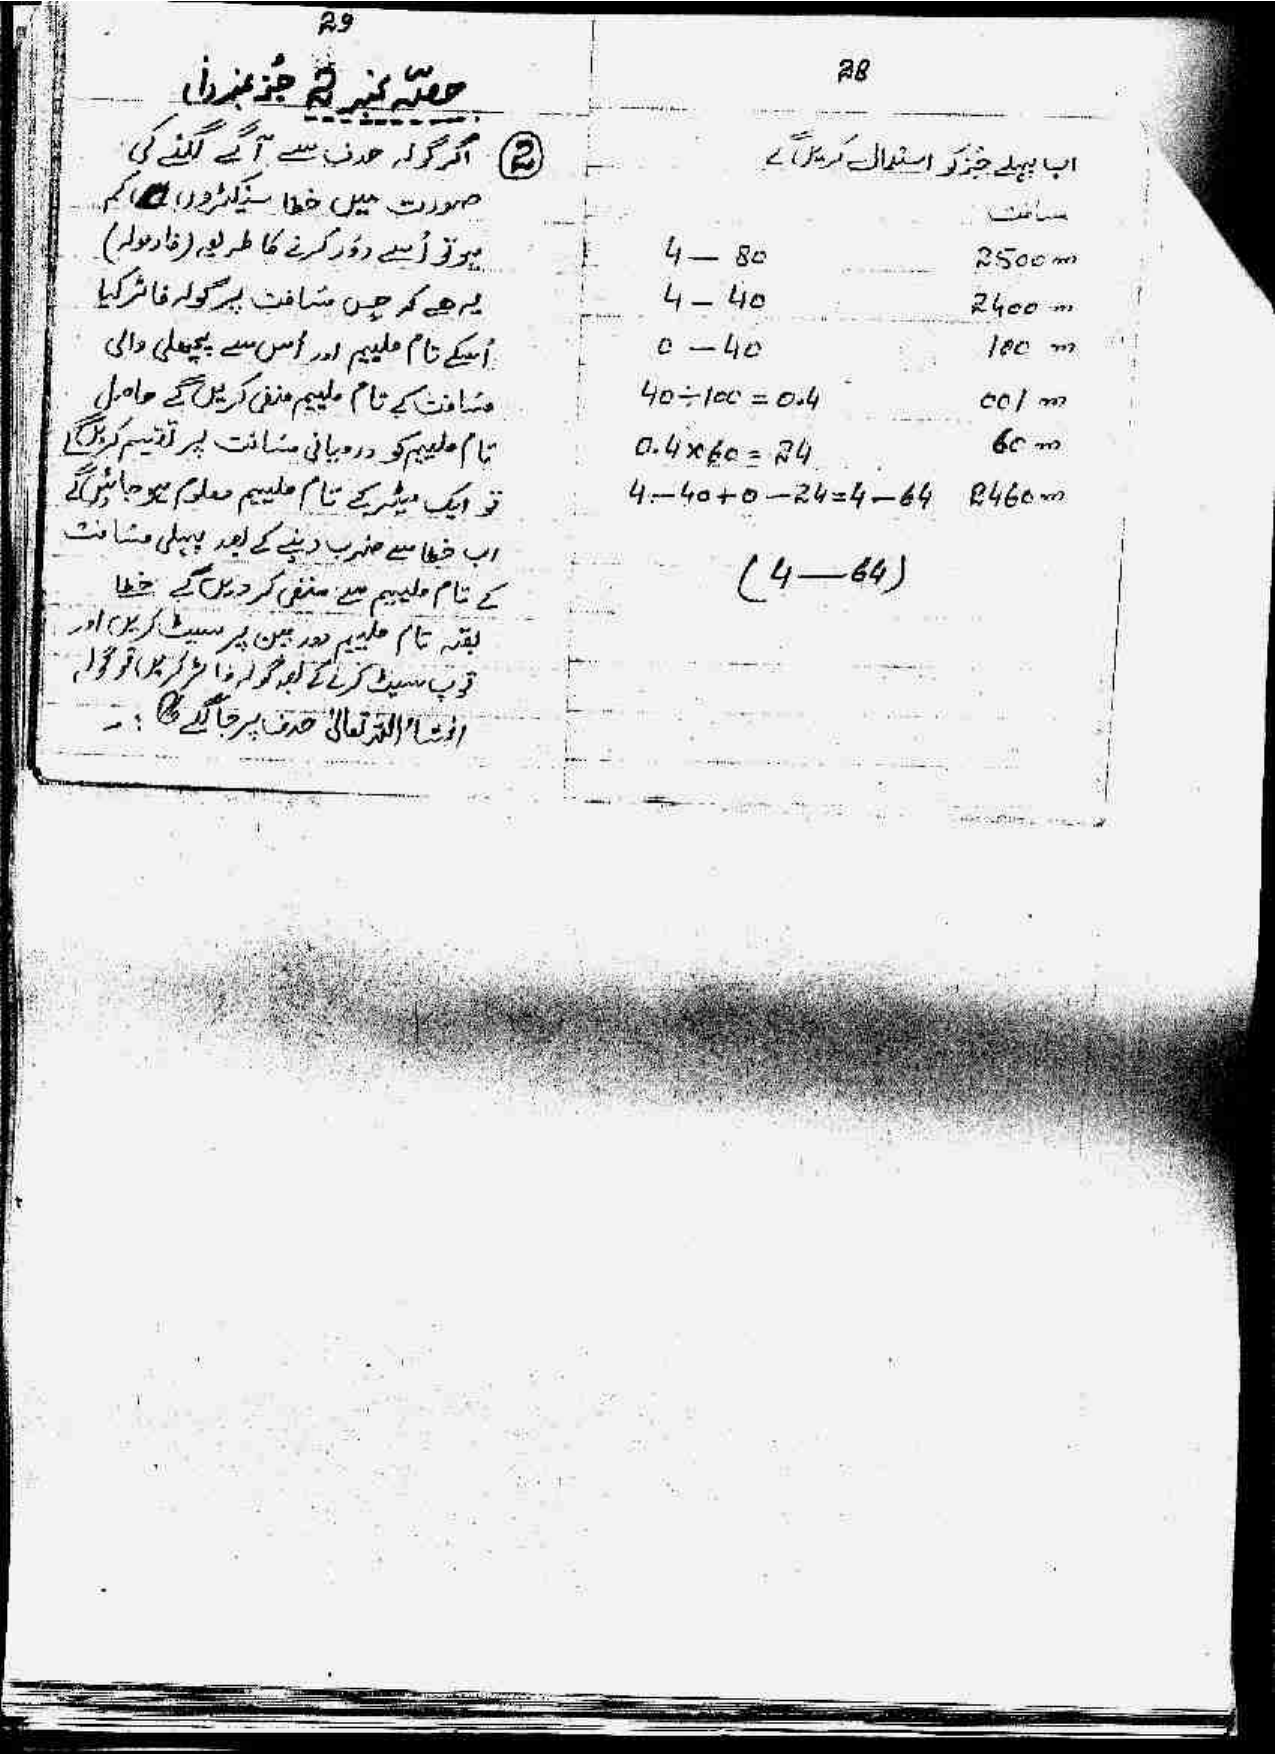 28
اب پہلے جُز کو استعمال کریں گے
مسافت
2500 m 4 — 80
2400 m 4 — 40
100 m 0 — 40
001 m 40÷100 = 0.4
60 m 0.4×60 = 24
2460 m 4 — 40 + 0 — 24 = 4 — 64
(4 — 64)
29
حصّہ نمبر 2 جُز نمبر
② اگر گولہ حدف سے آگے لگنے کی
صورت میں خطا سینکڑوں کم
ہو تو اُسے دور کرنے کا طریقہ (فارمولہ)
یہ ہے کہ جس مسافت پر گولہ فائر کیا
اُسکے تام ملیم اور اُس سے پچھلی والی
مسافت کے تام ملیم منفی کریں گے حاصل
تام ملیم کو درمیانی مسافت پر تقسیم کریں گے
تو ایک میٹر کے تام ملیم معلوم ہو جائیں گے
اب خطا سے ضرب دینے کے بعد پہلی مسافت
کے تام ملیم سے منفی کر دیں گے خطا
بقیہ تام ملیم دوربین پر سیٹ کریں اور
توپ سیٹ کرنے کے بعد گولہ فائر کریں تو گولہ
انشاء اللہ تعالیٰ حدف پر جا لگے گا